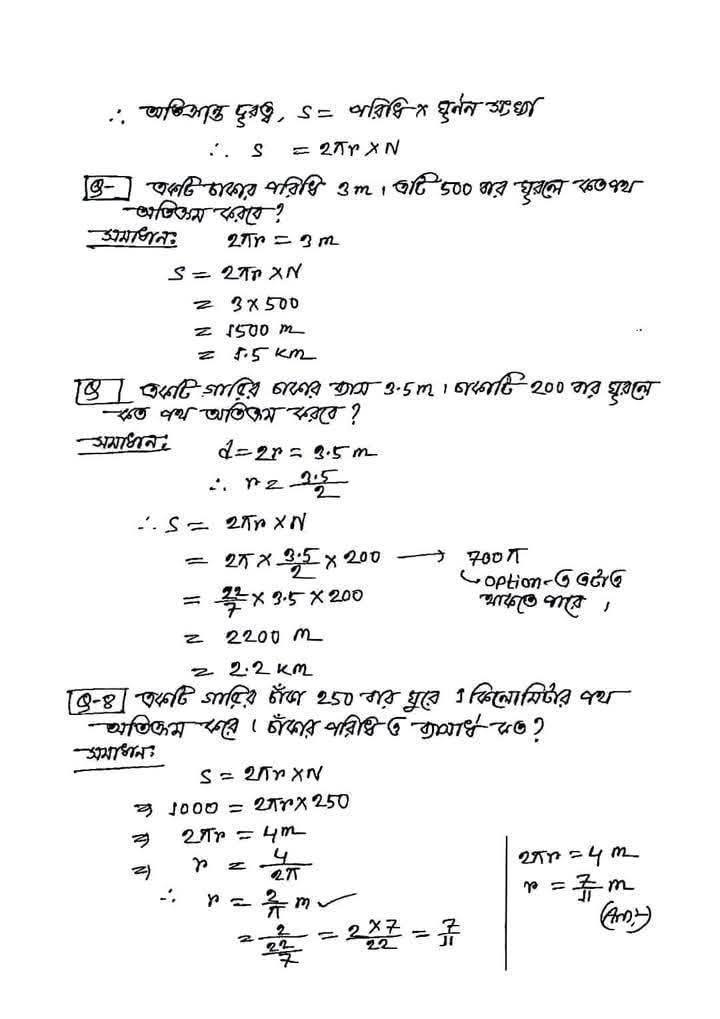 ∴ অতিক্রান্ত দূরত্ব, S = পরিধি × ঘূর্ণন সংখ্যা
∴ S = 2πr × N
Q- একটি চাকার পরিধি 3m। এটি 500 বার ঘুরলে কত পথ
অতিক্রম করবে?
সমাধান: 2πr = 3 m
S = 2πr × N
= 3 × 500
= 1500 m
= 1.5 km
Q একটি গাড়ির চাকার ব্যাস 3.5m। চাকাটি 200 বার ঘুরলে
কত পথ অতিক্রম করবে?
সমাধান: d = 2r = 3.5 m
∴ r = 3.5/2
∴ S = 2πr × N
= 2π × 3.5/2 × 200 → 700π
= 22/7 × 3.5 × 200 ↳ option-এ এটাও
থাকতে পারে।
= 2200 m
= 2.2 km
Q-8 একটি গাড়ির চাঁকা 250 বার ঘুরে 1 কিলোমিটার পথ
অতিক্রম করে। চাঁকার পরিধি ও ব্যাসার্ধ কত?
সমাধান:
S = 2πr × N
⇒ 1000 = 2πr × 250
⇒ 2πr = 4m
⇒ r = 4/2π
∴ r = 2/π m ✓
= 2/(22/7) = 2×7/22 = 7/11
2πr = 4 m
r = 7/11 m
(Ans:-)